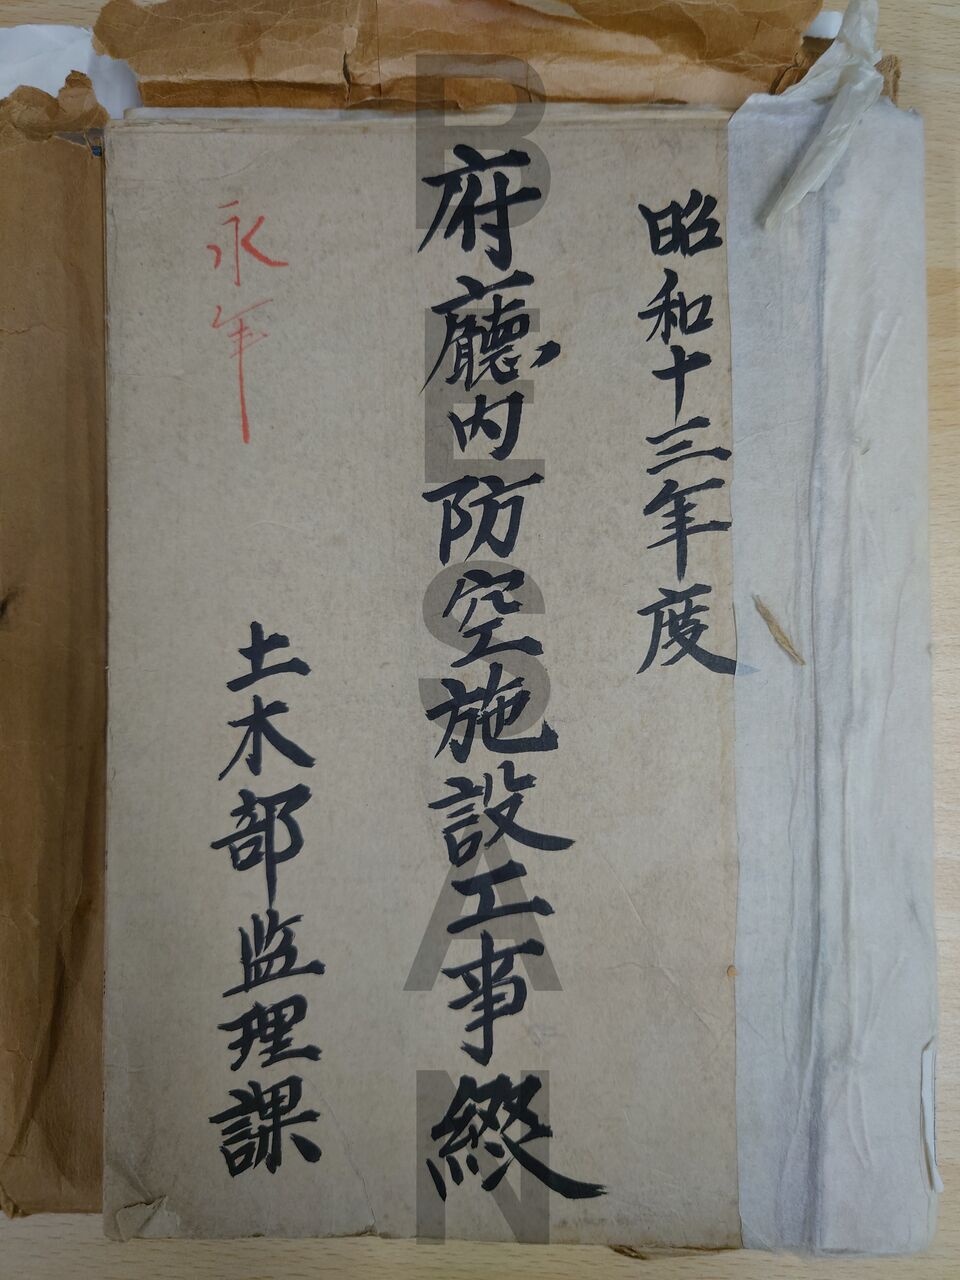 昭和十三年度
府廳内防空施設工事綴
永年
土木部監理課
BESAN